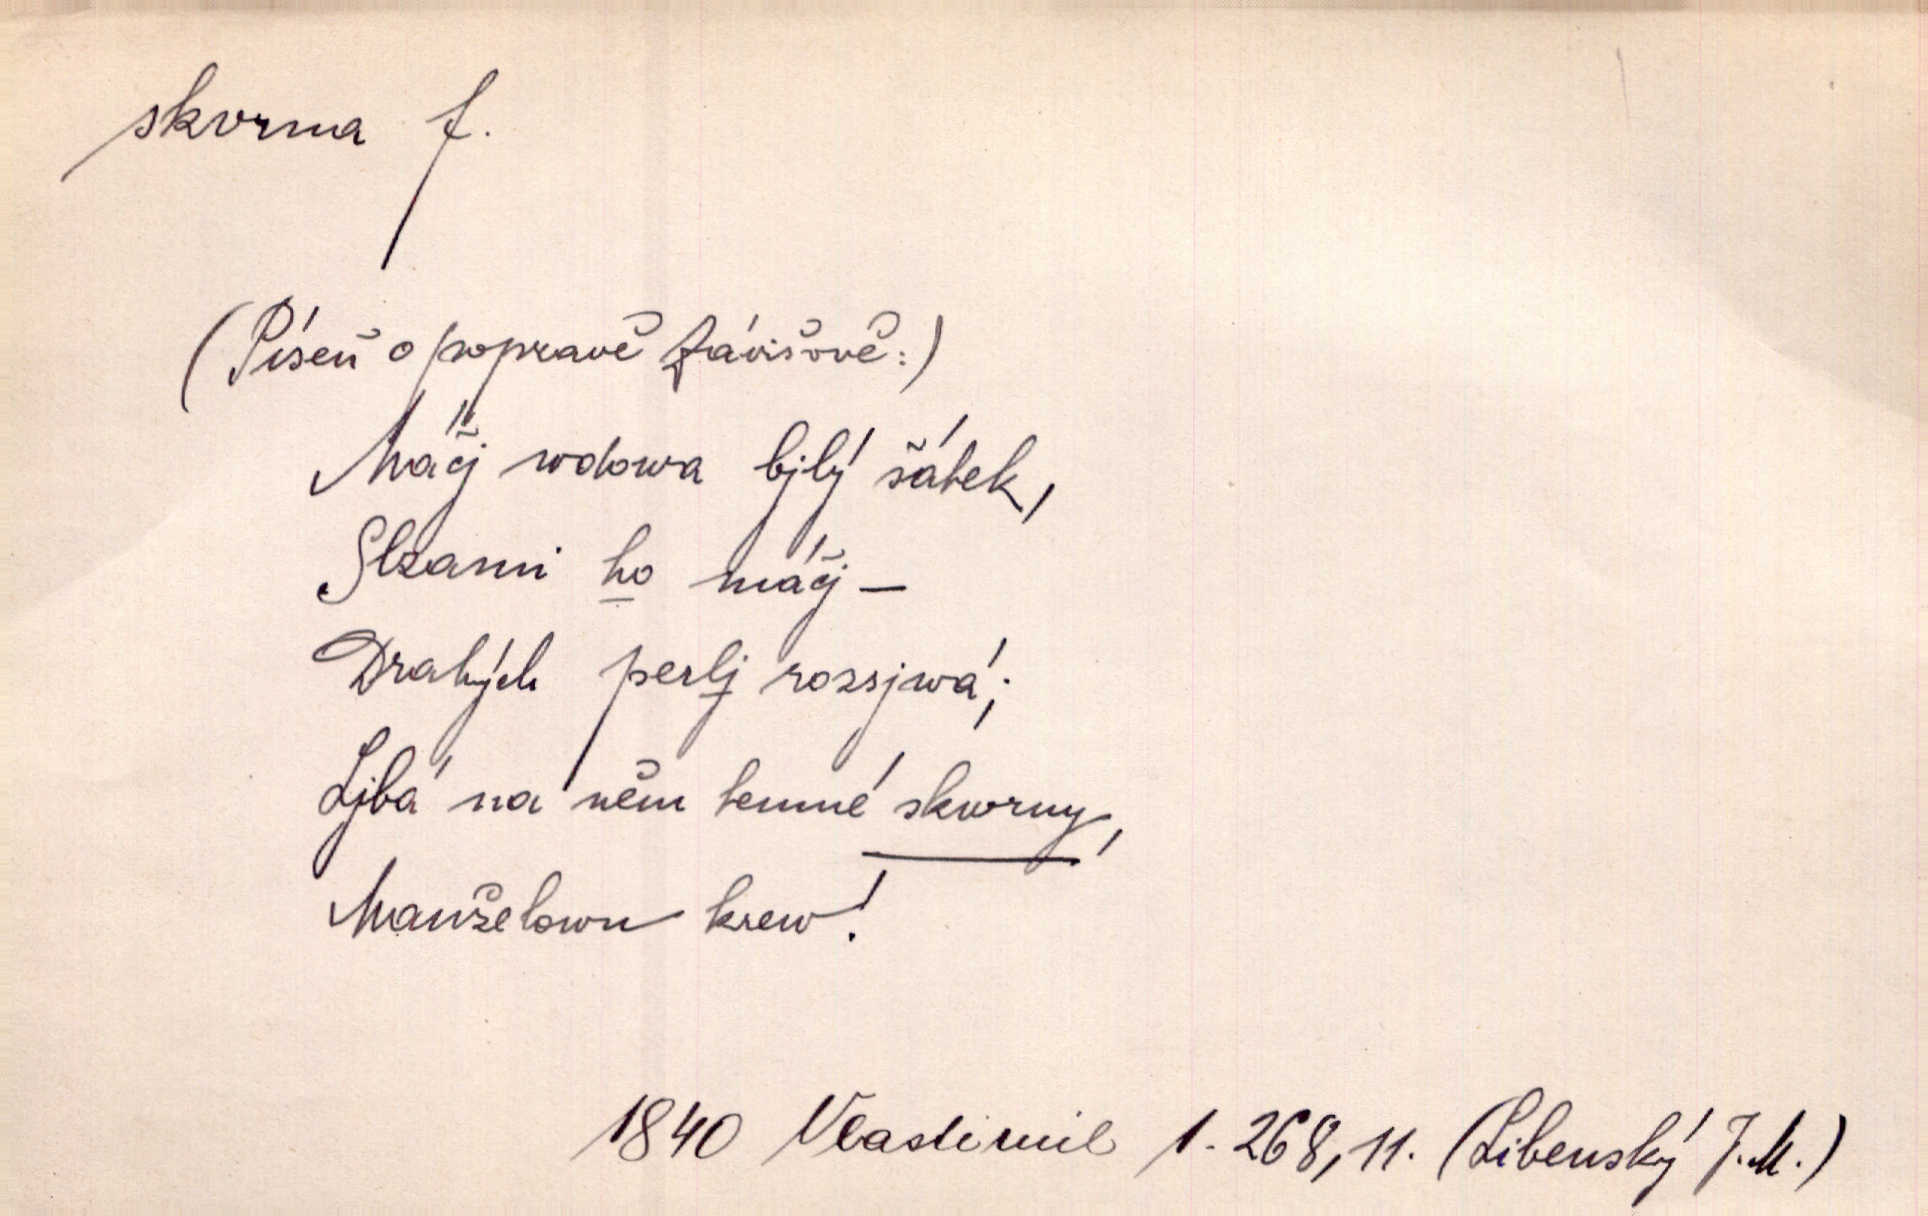 skvrna f.
(Píseň o popravě Závišově:)
Máčj wdowa bjlý šátek,
Slzami ho máčj —
Drahých perlj rozsjwá;
Ljbá na něm temné skwrny,
Manželowu krew!
1840 Vlastimil 1. 268, 11. (Libenský J. M.)